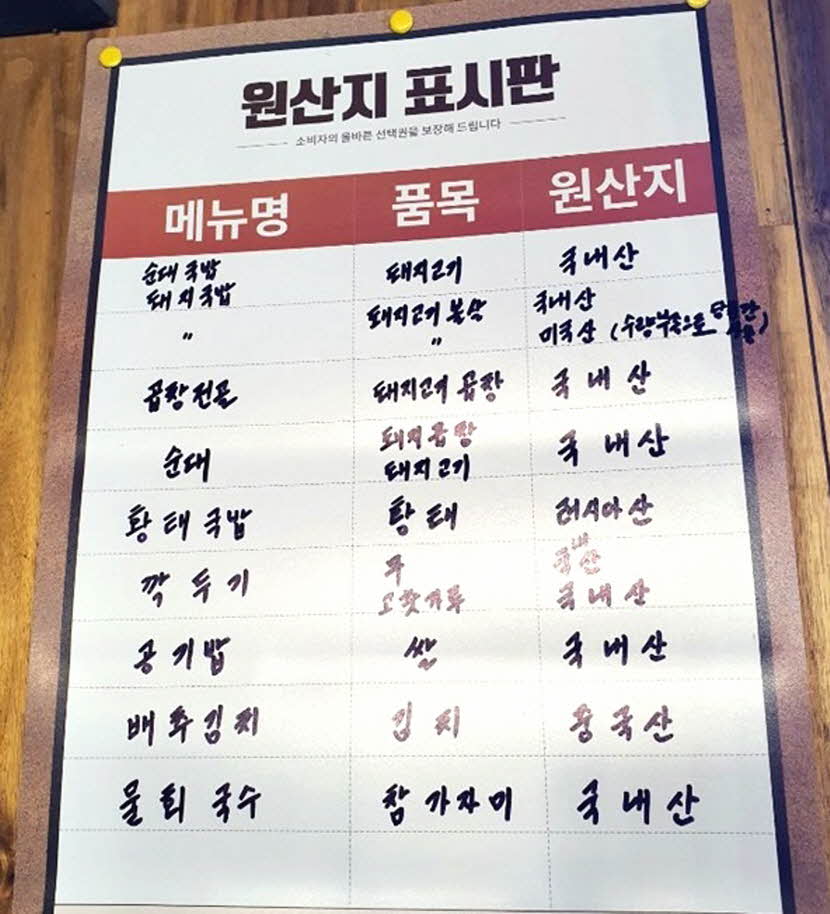 원산지 표시판
소비자의 올바른 선택권을 보장해 드립니다
메뉴명 품목 원산지
순대국밥 돼지고기 국내산
돼지국밥
〃 돼지고기 부속 국내산
〃 미국산 (수량부족으로 당분간
곱창전골 돼지고기 곱창 국내산
순대 돼지곱창 국내산
돼지고기
황태국밥 황태 러시아산
깍두기 무 국내산
고춧가루 국내산
공기밥 쌀 국내산
배추김치 김치 중국산
물회국수 참가자미 국내산